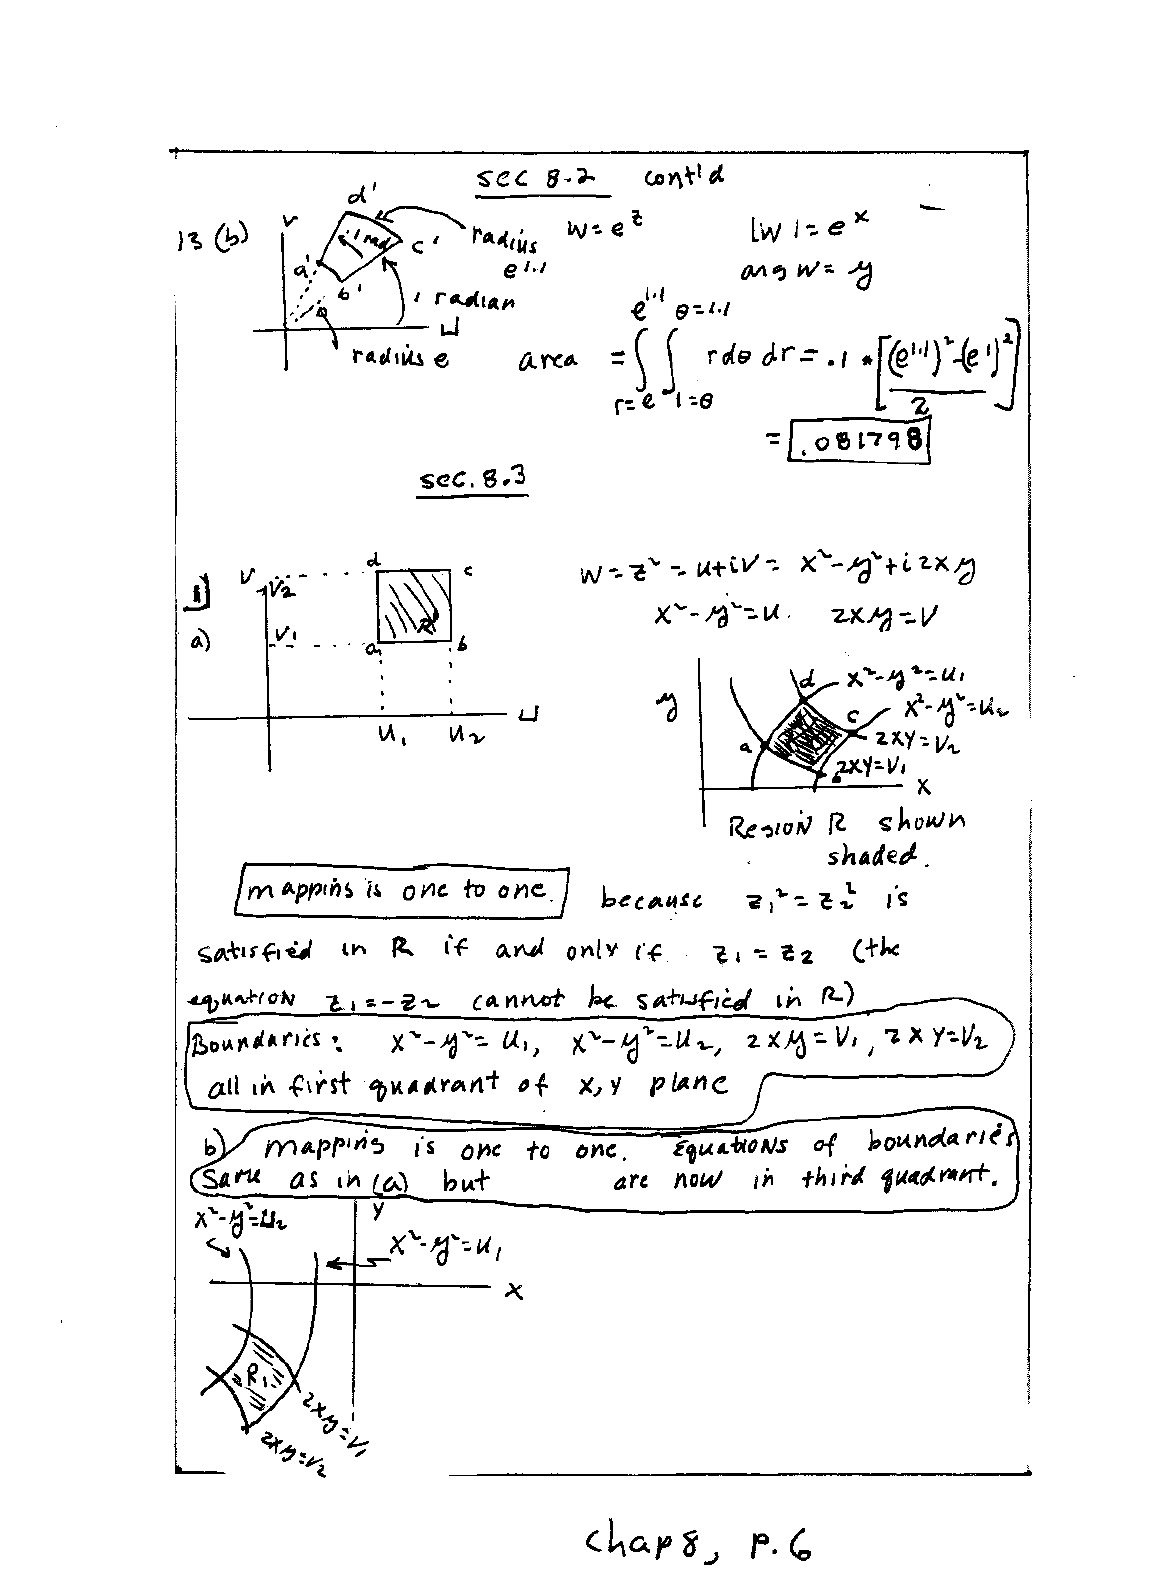 sec 8.2 cont'd
13 (b)
v
d'
.1 rad
c'
a'
b'
radius
e^1.1
1 radian
u
radius e
w = e^z |w| = e^x
arg w = y
area = ∫_{r=e}^{e^1.1} ∫_{1=θ}^{θ=1.1} r dθ dr = .1 * [((e^1.1)² - (e^1)²)/2]
= .081798
sec. 8.3
1
a)
v
v₂
v₁
d c
R'
a b
u
u₁ u₂
w = z² = u+iv = x²-y²+i2xy
x²-y²=u. 2xy=v
y
d x²-y²=u₁
c x²-y²=u₂
R
a 2xy=v₂
b 2xy=v₁
x
Region R shown
shaded.
mapping is one to one. because z₁²=z₂² is
satisfied in R if and only if z₁=z₂ (the
equation z₁=-z₂ cannot be satisfied in R)
Boundaries: x²-y²=u₁, x²-y²=u₂, 2xy=v₁, 2xy=v₂
all in first quadrant of x,y plane
b) mapping is one to one. Equations of boundaries
same as in (a) but are now in third quadrant.
x²-y²=u₂
y
x²-y²=u₁
x
R₁
2xy=v₁
2xy=v₂
chap 8, p.6